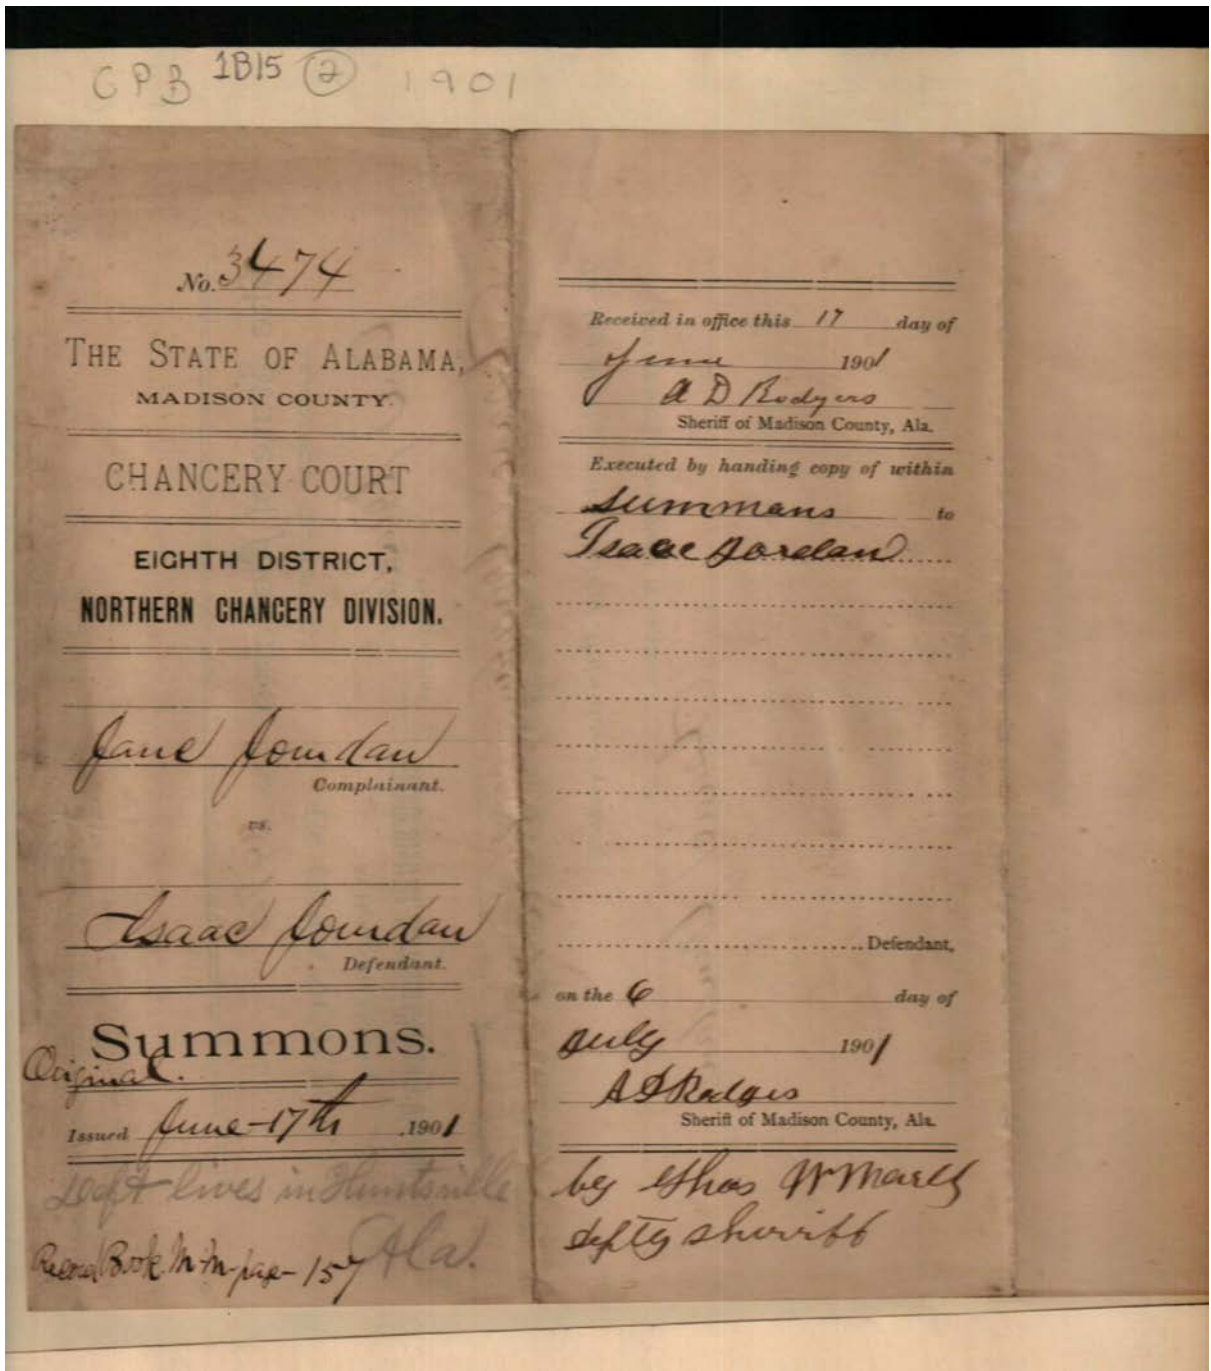 CPB 1B15 2 1901
No. 3474
THE STATE OF ALABAMA,
MADISON COUNTY.
CHANCERY COURT
EIGHTH DISTRICT,
NORTHERN CHANCERY DIVISION.
Jane Jourdan
Complainant.
vs.
Isaac Jourdan
Defendant.
Summons.
Original.
Issued June 17th, 1901
Deft lives in Huntsville
Ala.
Record Book M-M-page-157
Received in office this 17 day of
June 1901
A D Rodgers
Sheriff of Madison County, Ala.
Executed by handing copy of within
summans to
Isaac Jordan
Defendant,
on the 6 day of
July 1901
A D Rodgers
Sheriff of Madison County, Ala.
by Thos W
depty sherriff